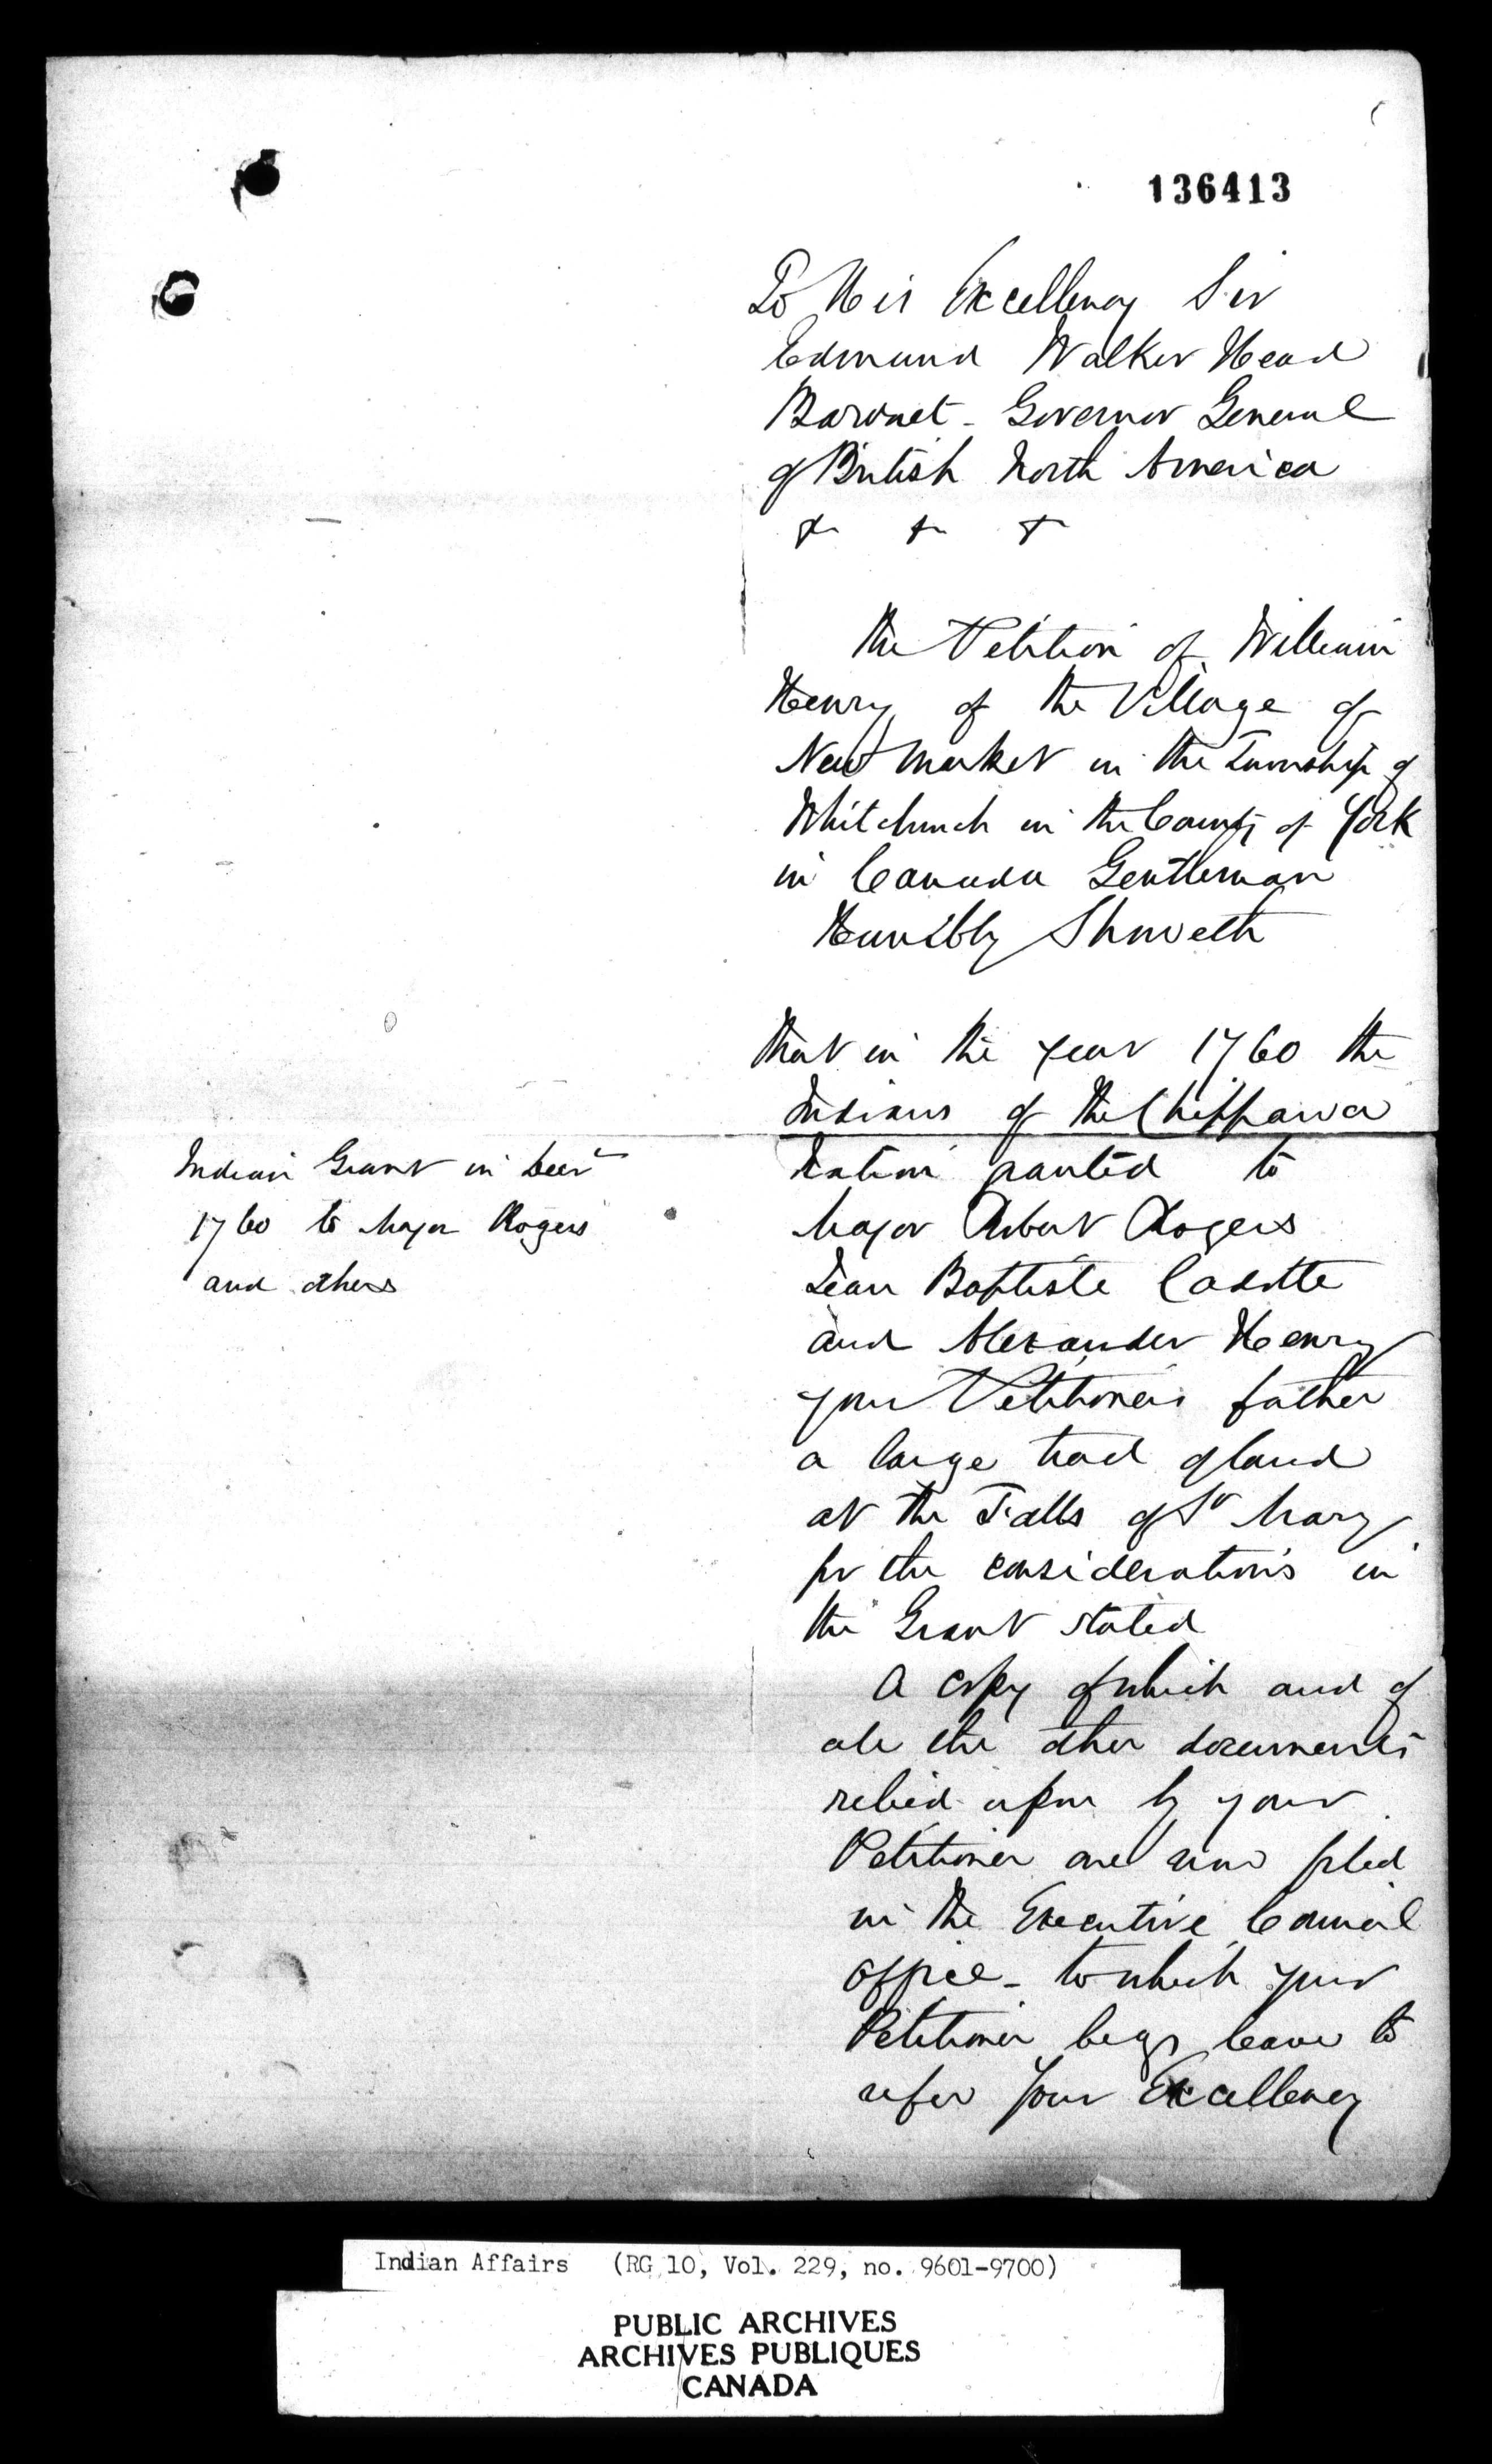 136413
To His Excellency Sir
Edmund Walker Head
Baronet - Governor General
of British North America
& & &
The Petition of William
Henry of the Village of
New Market in the Township of
Whitchurch in the County of York
in Canada Gentleman
Humbly Sheweth
That in the year 1760 the
Indians of the Chippawa
Nation granted to
Major Robert Rogers
Jean Baptiste Cadotte
and Alexander Henry
your Petitioners father
a large tract of land
at the Falls of St Mary
for the considerations in
the Grant stated
A copy of which and of
all the other documents
relied upon by your
Petitioner are now filed
in the Executive Council
office - to which your
Petitioner begs leave to
refer Your Excellency
Indian Grant in Decr
1760 to Major Rogers
and others
Indian Affairs (RG 10, Vol. 229, no. 9601-9700)
PUBLIC ARCHIVES
ARCHIVES PUBLIQUES
CANADA